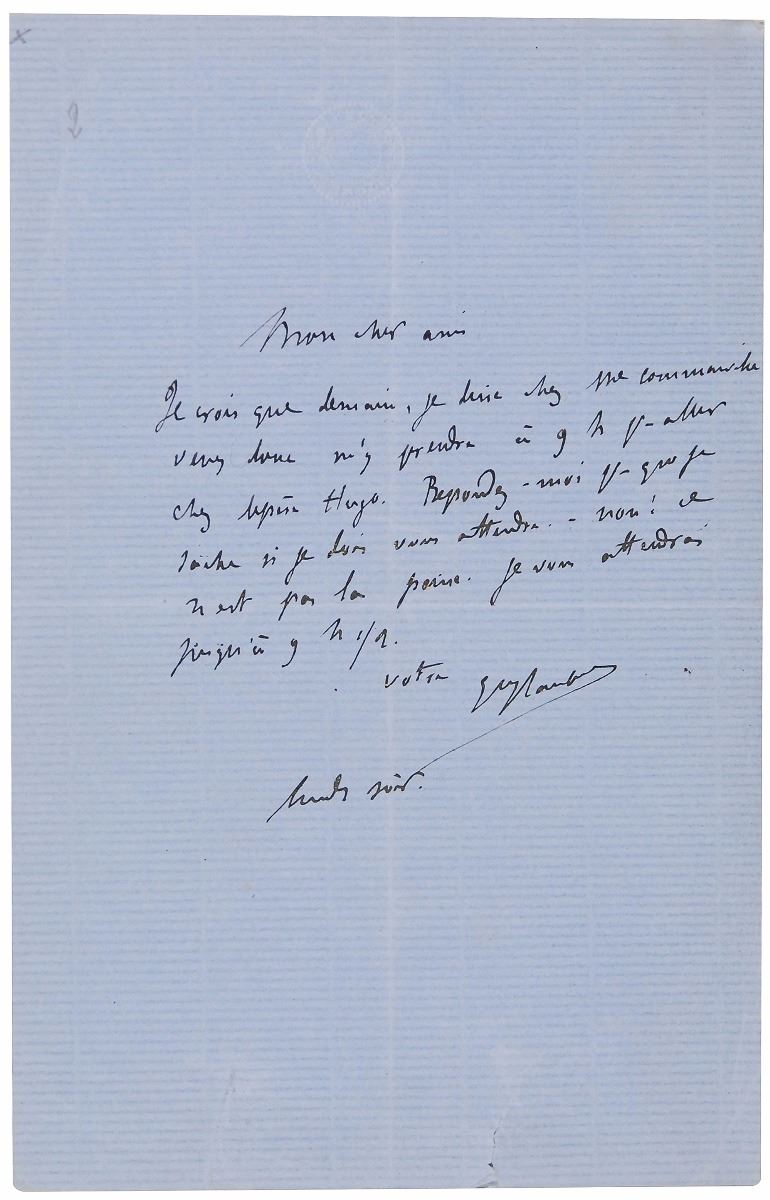 x
2
Mon cher ami
Je crois que demain, je dîne chez Me Commanville
venez donc m'y prendre à 9 h pr aller
chez le père Hugo. Repondez-moi pr que je
sache si je dois vous attendre. - non! ce
n'est pas la peine. Je vous attendrai
jusqu'à 9 h 1/2.
votre GveFlaubert
lundi soir.